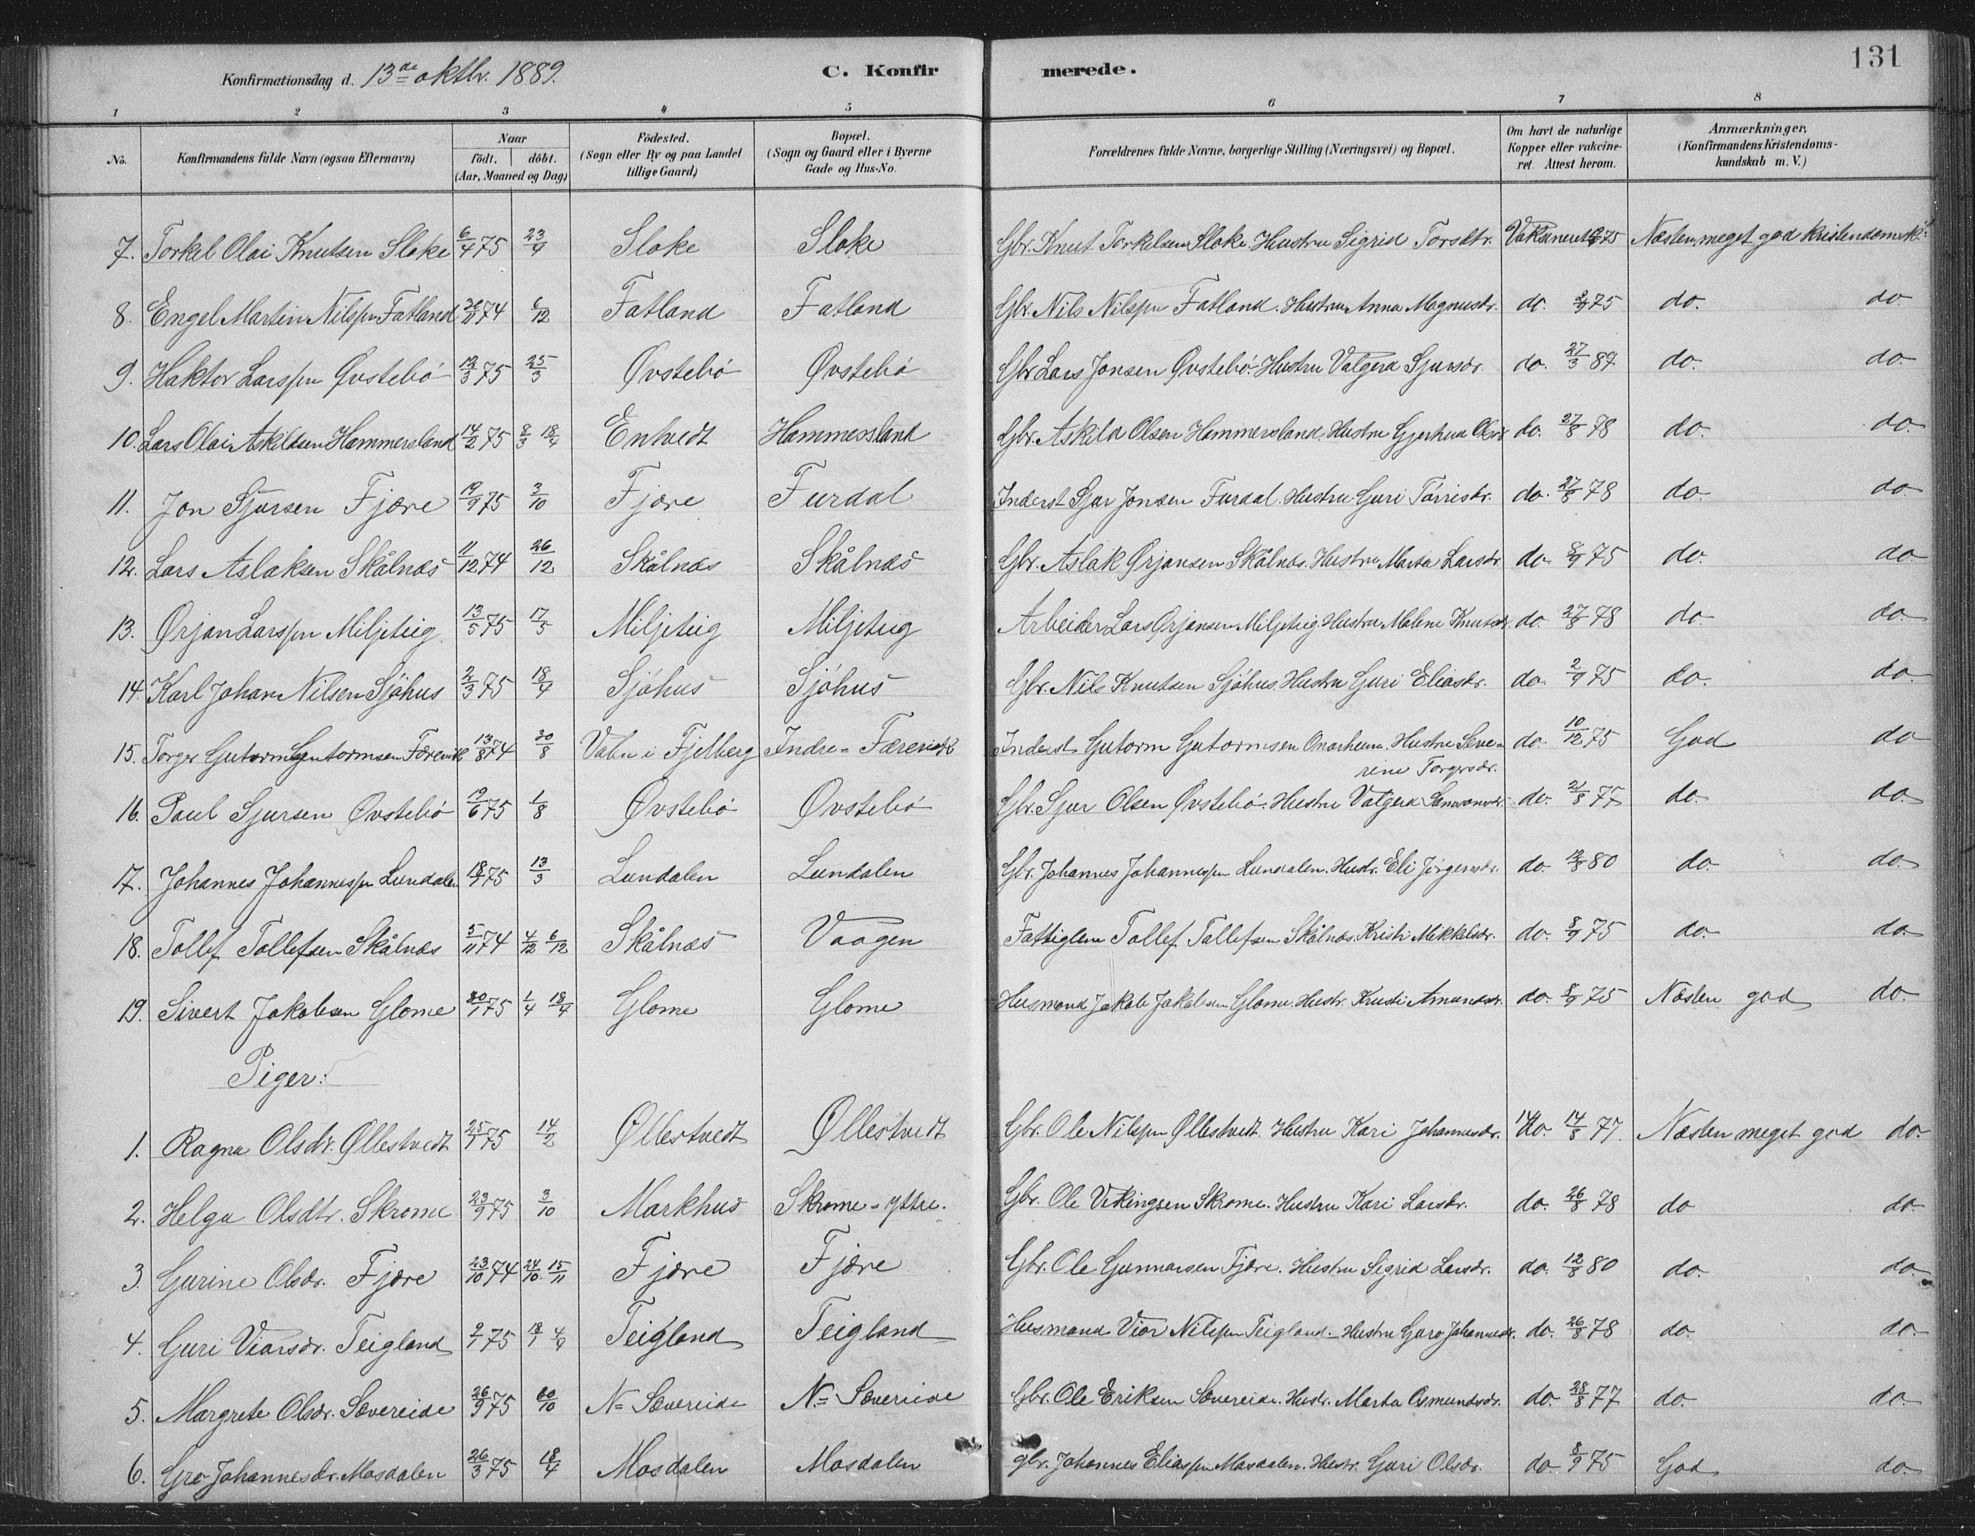 131
Konfirmationsdag d. 13de oktbr. 1889.
C. Konfir
merede.
1 2 3 4 5 6 7 8
No.
Konfirmandens fulde Navn (ogsaa Efternavn)
Naar
födt. döbt.
(Aar, Maaned og Dag)
Födested.
(Sogn eller By og paa Landet
tillige Gaard)
Bopæl.
(Sogn og Gaard eller i Byerne
Gade og Hus-No.
Forældrenes fulde Navne, borgerlige Stilling (Næringsvei) og Bopæl.
Om havt de naturlige
Kopper eller vakcine-
ret. Attest herom.
Anmærkninger.
(Konfirmandens Kristendoms-
kundskab m. V.)
7. Torkel Olai Knutsen Sloke 6/4 75 23/4 Sloke Sloke Gbr. Knut Torkelsen Sloke. Hustru Sigrid Torsdtr. Næsten meget god
8. Engel Martin Nilssen Fatland 26/11 74 6/12 Fatland Fatland Gbr. Nils Nilssen Fatland. Hustru Anna Magnusdr. do. 75 do. do
9. Haktor Larssen Øvstebö 12/3 75 25/3 Øvstebö Øvstebö Gbr. Lars Jonsen Øvstebö. Hustru Valgerd Sjursdr. do. 27/3 87 do. do.
10. Lars Olai Askildsen Hammersland 14/2 75 8/3 18/4 Enhvedt Hammersland Gbr. Askild Olsen Hammersland. Hustru do. 27/8 78 do. do.
11. Jon Sjursen Fjære 19/9 75 3/10 Fjære Furdal Inderst Sjur Jonsen Furdal. Hustru Guri Törrisdr. do. 27/8 78 do. do.
12. Lars Aslaksen Skålnæs 11/12 74 26/12 Skålnæs Skålnæs Gbr. Aslak Ørjansen Skålnæs. Hustru Marta Larsdr. do. 8/9 75 do. do.
13. Ørjan Larssen Miljeteig 13/5 75 17/5 Miljeteig Miljeteig Arbeider Lars Ørjansen Miljeteig Hustru Malene Knutsdr. do. 27/8 78 do. do.
14. Karl Johan Nilsen Sjöhus 2/3 75 18/4 Sjöhus Sjöhus Gbr. Nils Knutsen Sjöhus. Hustru Guri Eliasdr. do. 2/9 75 do. do.
15. Torger Gutorm Gutormsen Færevik 13/8 74 30/8 i Fjelberg Indre-Færevik Inderst Gutorm Gutormsen Onarheim. Hustru Seve- do. 10/12 75 God do
rine Torgersdr.
16. Paul Sjursen Øvstebö 19/6 75 1/8 Øvstebö Øvstebö Gbr. Sjur Olsen Øvstebö. Hustru Valgerd do. 21/8 77 do. do.
17. Johannes Johannessen Lundalen 75 13/3 Lundalen Lundalen Gbr. Johannes Johannessen Lundalen. Hustr. Eli Jörgensdr. do. 12/8 80 do. do.
18. Tollef Tollefsen Skålnæs 5/11 74 4/12 6/12 Skålnæs Vaagen Fattiglem Tollef Tollefsen Skålnæs. Kristi Mikkelsdr. do. 8/9 75 do. do.
19. Sivert Jakobsen Glome 75 1/4 18/4 Glome Glome Husmand Jakob Jakobsen Glome. Hustr. Kristi Amundsdr. do. 8/9 75 Næsten god do.
Piger:
1. Ragna Olsdr. Øllestvedt 25/1 75 14/2 Øllestvedt Øllestvedt Gbr. Ole Nilssen Øllestvedt. Hustru Kari Johannesdr. do. 14/8 77. Næsten meget god do.
2. Helga Olsdtr. Skrome 23/9 75 3/10 Markhus Skrome-Yttre. Gbr. Ole Vikingsen Skrome. Hustru Kari Larsdr. do. 26/8 78 do do.
3. Gurine Olsdr. Fjære 23/10 74 24/10 15/11 Fjære Fjære Gbr. Ole Gunnarsen Fjære. Hustru Sigrid Larsdr. do. 12/8 80 do. do.
4. Guri Viarsdr. Teigland 75 Teigland Teigland Husmand Viar Nilssen Teigland. Hustru Garo Johannesdr. do. 26/8 78 do. do.
5. Margrete Olsdr. Sævereide 26/9 75 N= Sævereide N= Sævereide Gbr. Ole Eriksen Sævereide. Hustr. Marta Osmundsdr. do. 28/8 77 do. do.
6. Gro Johannesdr. Mosdalen 26/3 75 18/4 Mosdalen Mosdalen gbr. Johannes Eliassen Mosdalen. Hustr. Guri Olsdr. do. 8/9 75 God do.